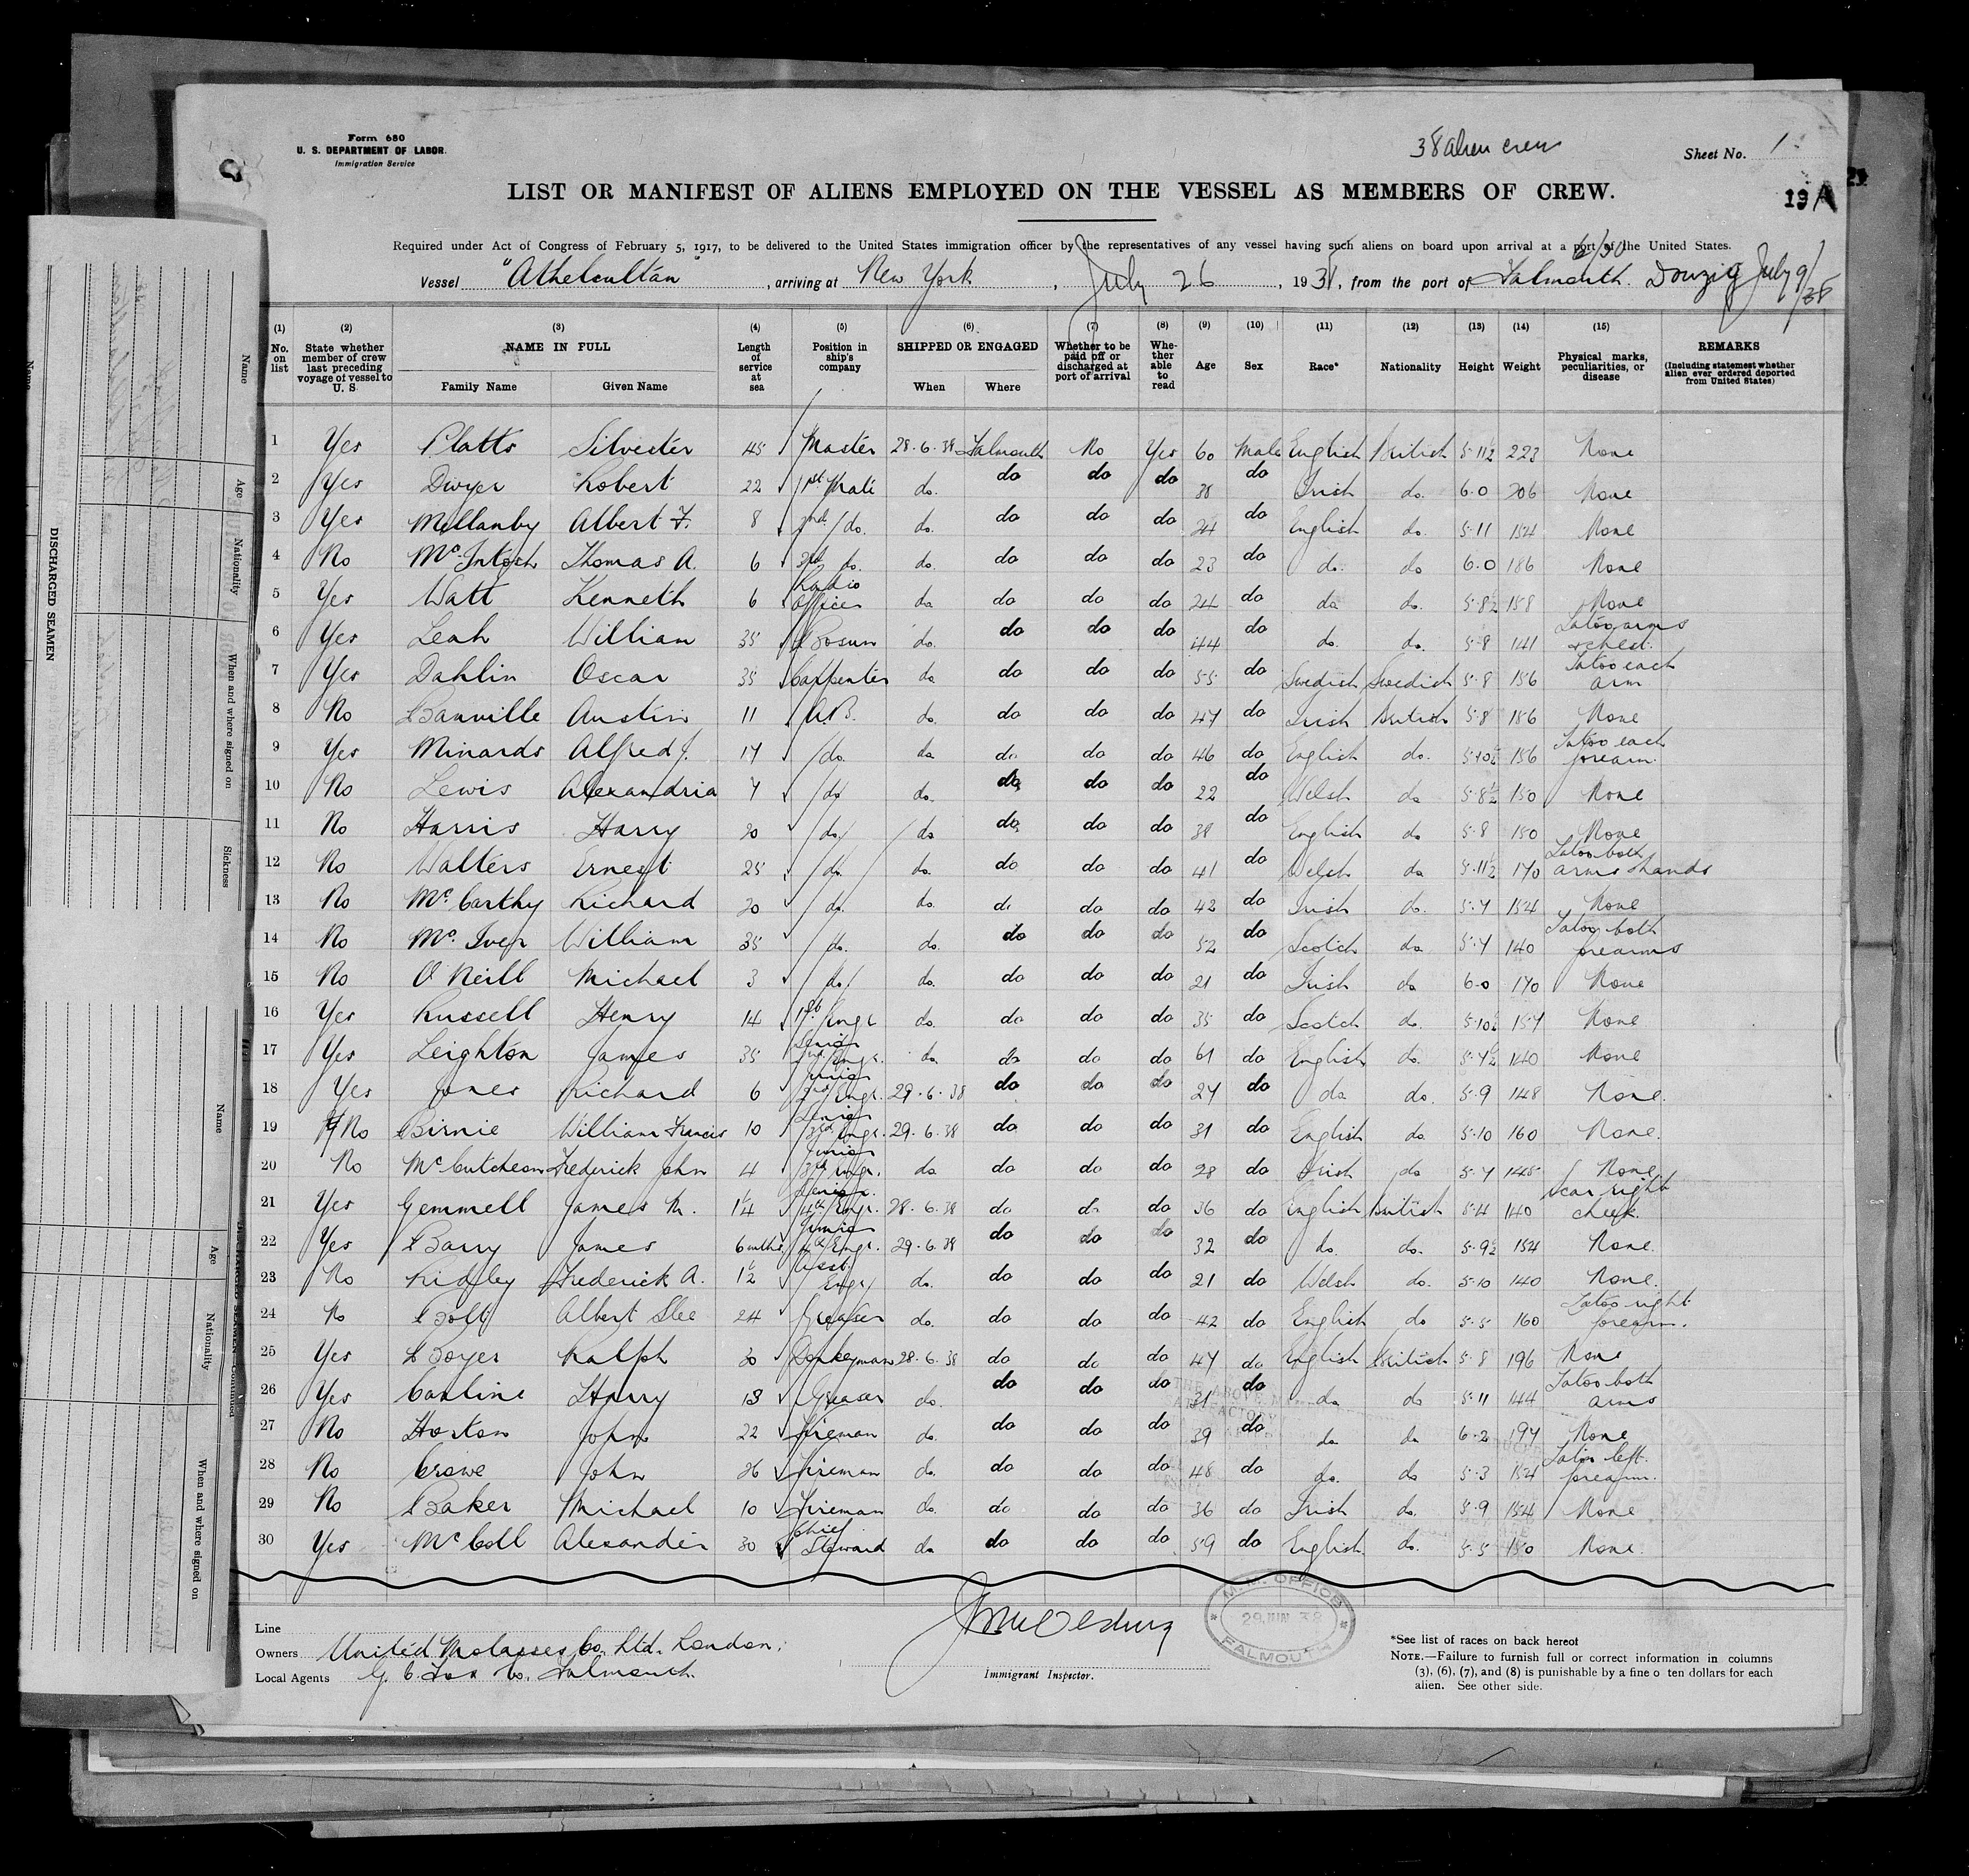 Form 680
U. S. DEPARTMENT OF LABOR
Immigration Service
38 alien crew
Sheet No. 1
19 A
LIST OR MANIFEST OF ALIENS EMPLOYED ON THE VESSEL AS MEMBERS OF CREW.
Required under Act of Congress of February 5, 1917, to be delivered to the United States immigration officer by the representatives of any vessel having such aliens on board upon arrival at a port of the United States.
Vessel "Athelsultan", arriving at New York, July 26, 193, from the port of Falmouth. Danzig July 9/38
(1) (2) (3) (4) (5) (6) (7) (8) (9) (10) (11) (12) (13) (14) (15)
No. on list
State whether member of crew last preceding voyage of vessel to U. S.
NAME IN FULL
Family Name Given Name
Length of service at sea
Position in ship's company
SHIPPED OR ENGAGED
When Where
Whether to be paid off or discharged at port of arrival
Whe-ther able to read
Age
Sex
Race*
Nationality
Height
Weight
Physical marks, peculiarities, or disease
REMARKS
(Including statement whether alien ever ordered deported from United States)
1 Yes Platts Silvester 45 Master 28.6.38 Falmouth No Yes 60 Male English British 5-11½ 223 None
2 Yes Dwyer Robert 22 1st Mate do. do do do 38 do Irish do. 6.0 206 None
3 Yes Mellanby Albert F. 8 2nd do. do. do do do 24 do English do. 5-11 154 None
4 No McIntosh Thomas A. 6 3rd do. do. do do do 23 do do. do 6.0 186 None
5 Yes Watt Kenneth 6 Radio Officer do do do do 24 do do do. 5-8½ 158 None
6 Yes Leah William 35 Bosun do. do do do 44 do do. do. 5-8 141 Tatoo arms & chest.
7 Yes Dahlin Oscar 35 Carpenter do do do do 55 do Swedish Swedish 5-8 156 Tatoo each arm
8 No Banville Austin 11 A.B. do. do do do 47 do Irish British 5-8 156 None
9 Yes Minards Alfred J. 17 do. do do do do 46 do English do. 5-10½ 156 Tatoo each forearm.
10 No Lewis Alexandria 7 do do. do do do 22 do Welsh do 5-8½ 150 None
11 No Harris Harry 20 do do do do do 38 do English do 5-8 150 None
12 No Walters Ernest 25 do do. do do do 41 do Welsh do 5-11½ 170 Tatoo both arms & hands
13 No McCarthy Richard 20 do. do. do do do 42 do Irish do. 5-7 154 None
14 No McIver William 35 do. do. do do do 52 do Scotch do 5-7 140 Tatoo both forearms
15 No O'Neill Michael 3 do do. do do do 21 do Irish do 6-0 170 None
16 Yes Russell Henry 14 1st Engr do. do do do 35 do Scotch do. 5-10½ 157 None
17 Yes Leighton James 35 Senior 2nd Engr. do. do do do 61 do English do. 5-7½ 140 None
18 Yes Jones Richard 6 Junior 2nd Engr. 29.6.38 do do do 27 do do do. 5-9 148 None.
19 No Birnie William Francis 10 Senior 3rd Engr. 29.6.38 do do do 31 do English do. 5-10 160 None.
20 No McCutcheon Frederick John 4 Junior 3rd Engr. do do do do 28 do Irish do 5-7 145 None
21 Yes Gemmell James M. 1¼ Senior 4th Engr. 28.6.38 do do do 36 do English British 5-4 140 Scar right cheek.
22 Yes Barry James 6 mths. Junior 4th Engr. 29.6.38 do do do 32 do do. do. 5-9½ 154 None.
23 No Ridley Frederick A. 1½ Asst. Engr do. do do do 21 do Welsh do. 5-10 140 None.
24 No Bolt Albert Slee 24 Greaser do. do do do 42 do English do 5-5 160 Tatoo right forearm.
25 Yes Boyer Ralph 30 Donkeyman 28.6.38 do do do 47 do English British 5-8 196 None
26 Yes Harry 13 Greaser do. do do do 31 do do do 5-11 144 Tatoo both arms
27 No Horton John 22 Fireman do. do do do 39 do do do 6-2 197 None
28 No Crowe John 26 Fireman do. do do do 48 do do. do 5-3 154 Tatoo left forearm.
29 No Baker Michael 10 Fireman do. do do do 36 do Irish do. 5-9 154 None
30 Yes McColl Alexander 30 Chief Steward do do do do 59 do English do. 5-5 150 None.
Line
Owners United Molasses Co. Ltd. London.
Local Agents G. C. Fox Co. Falmouth.
Immigrant Inspector.
M.M. OFFICE
29 JUN 38
FALMOUTH
*See list of races on back hereof
NOTE.—Failure to furnish full or correct information in columns (3), (6), (7), and (8) is punishable by a fine o ten dollars for each alien. See other side.
DISCHARGED SEAMEN
Name
Age
Nationality
When and where signed on
Sickness
Name
Age
Nationality
When and where signed on